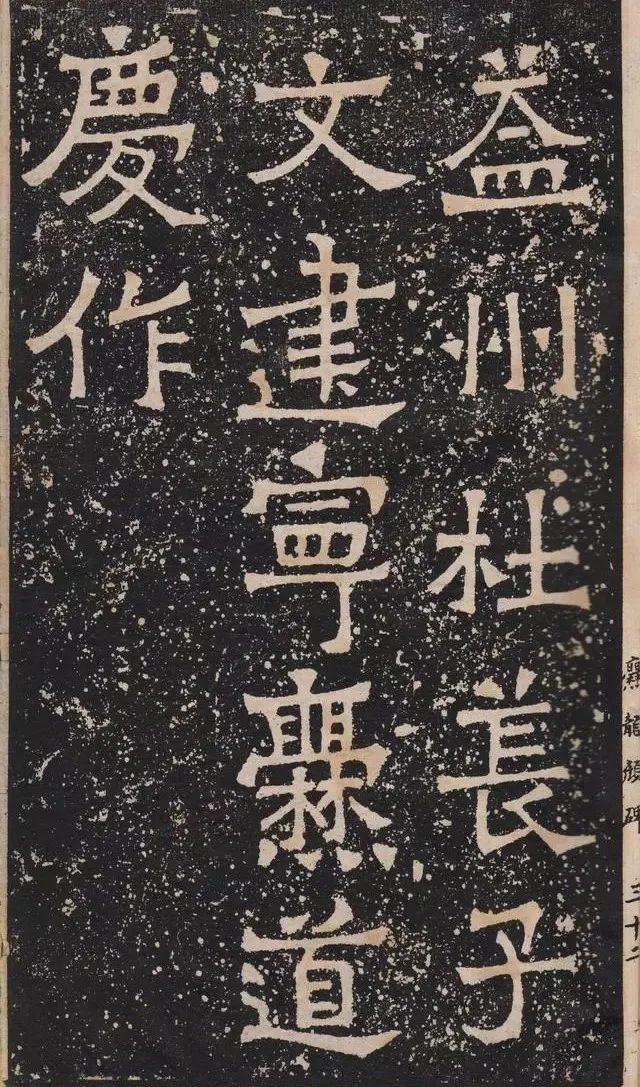 益州杜萇子
文建寧爨道
慶作
爨龍顏碑 三十